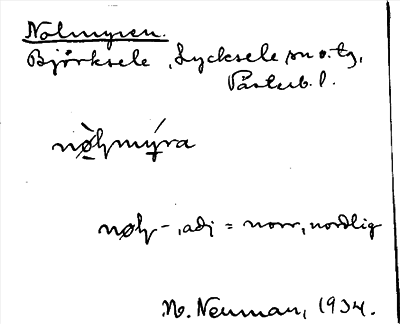 Nolmyren.
Bjørksele, Lycksele sn o. tg,
Västerb. l.
nø̀lmýra
nøl-, adj = norr, nordlig
N. Neuman, 1934.